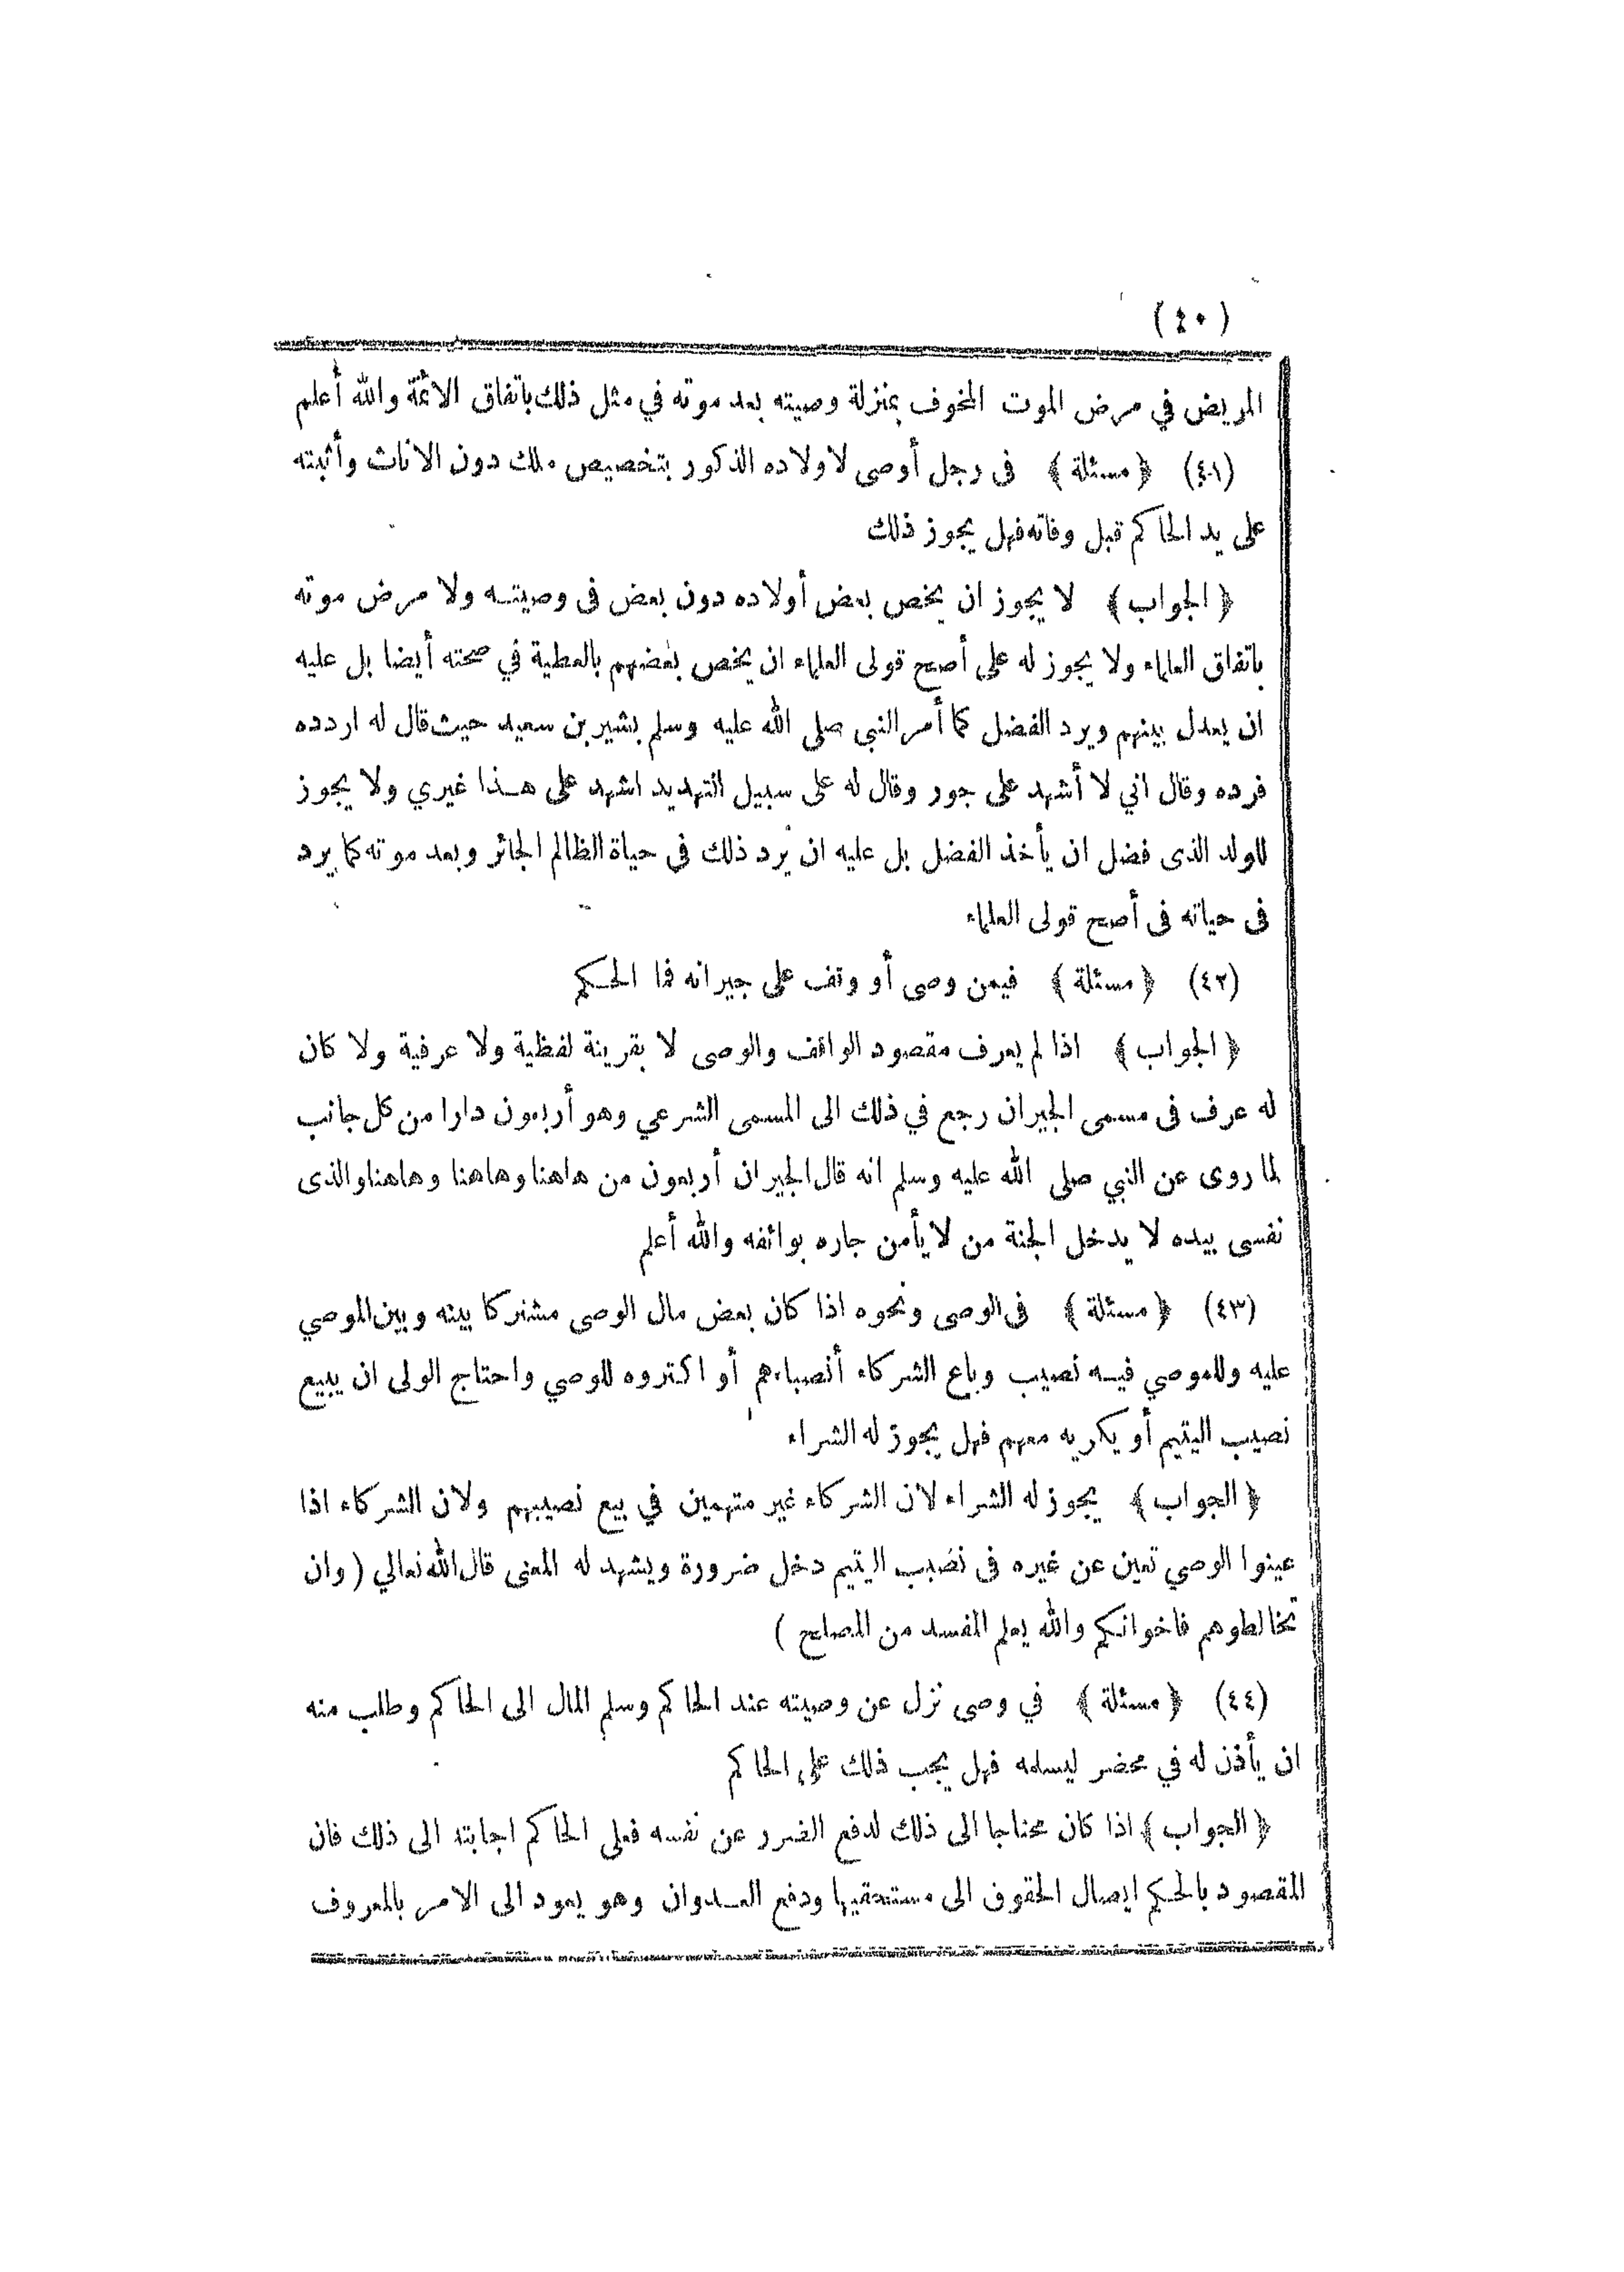 (٤٠)
المريض في مرض الموت المخوف بمنزلة وصيته بعد موته في مثل ذلك باتفاق الائمة والله أعلم
(٤١) ﴿ مسئلة ﴾ فى رجل أوصى لاولاده الذكور بتخصيص ملك دون الاناث وأثبته
على يد الحاكم قبل وفاته فهل يجوز ذلك
﴿ الجواب ﴾ لا يجوز ان يخص بعض أولاده دون بعض فى وصيته ولا مرض موته
باتفاق العلماء ولا يجوز له على أصح قولى العلماء ان يخص بعضهم بالعطية في صحته أيضا بل عليه
ان يعدل بينهم ويرد الفضل كما أمر النبى صلى الله عليه وسلم بشير بن سعيد حيث قال له اردده
فرده وقال اني لا أشهد على جور وقال له على سبيل التهديد اشهد على هذا غيري ولا يجوز
للولد الذى فضل ان يأخذ الفضل بل عليه ان يرد ذلك فى حياة الظالم الجائر وبعد موته كما يرد
فى حياته فى أصح قولى العلماء
(٤٢) ﴿ مسئلة ﴾ فيمن وصى أو وقف على جيرانه فما الحكم
﴿ الجواب ﴾ اذا لم يعرف مقصود الواقف والوصى لا بقرينة لفظية ولا عرفية ولا كان
له عرف فى مسمى الجيران رجع في ذلك الى المسمى الشرعي وهو أربعون دارا من كل جانب
لما روى عن النبي صلى الله عليه وسلم انه قال الجيران أربعون من هاهنا وهاهنا وهاهنا والذى
نفسى بيده لا يدخل الجنة من لا يأمن جاره بوائقه والله أعلم
(٤٣) ﴿ مسئلة ﴾ فى الوصى ونحوه اذا كان بعض مال الوصى مشتركا بينه وبين الموصي
عليه وللموصي فيه نصيب وباع الشركاء أنصباءهم أو اكتروه للوصي واحتاج الولى ان يبيع
نصيب اليتيم أو يكريه معهم فهل يجوز له الشراء
﴿ الجواب ﴾ يجوز له الشراء لان الشركاء غير متهمين في بيع نصيبهم ولان الشركاء اذا
عينوا الوصي تعين عن غيره فى نصيب اليتيم دخل ضرورة ويشهد له المعنى قال الله تعالي ( وان
تخالطوهم فاخوانكم والله يعلم المفسد من المصلح )
(٤٤) ﴿ مسئلة ﴾ في وصى نزل عن وصيته عند الحاكم وسلم المال الى الحاكم وطلب منه
ان يأذن له في محضر ليسلمه فهل يجب ذلك على الحاكم
﴿ الجواب ﴾ اذا كان محتاجا الى ذلك لدفع الضرر عن نفسه فعلى الحاكم اجابته الى ذلك فان
المقصود بالحكم ايصال الحقوق الى مستحقيها ودفع العدوان وهو يعود الى الامر بالمعروف